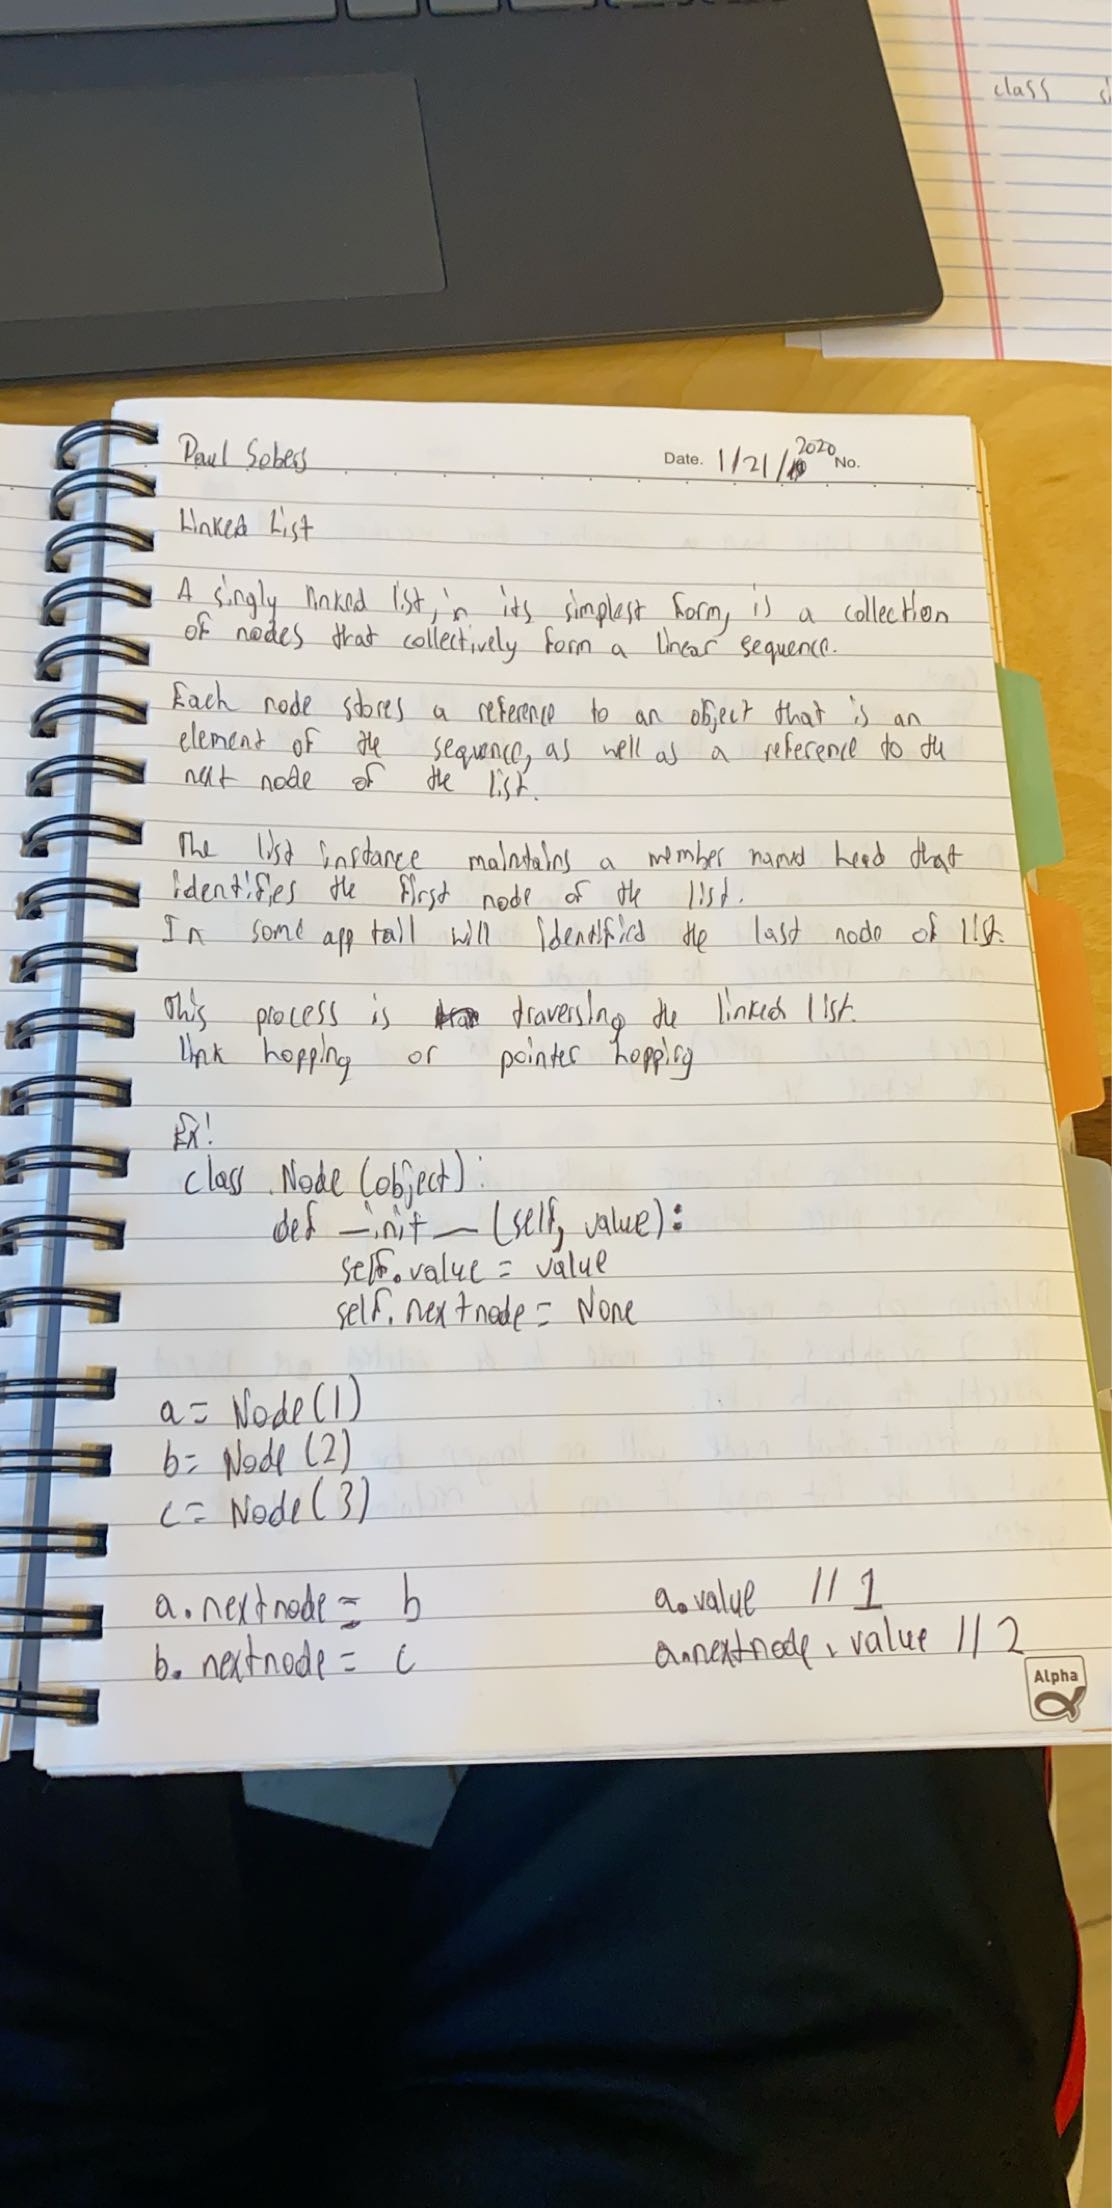 class
Paul Sobess
Date. 1/21/2020 No.
Linked List
A singly linked list, in its simplest form, is a collection
of nodes that collectively form a linear sequence.
Each node stores a reference to an object that is an
element of the sequence, as well as a reference to the
next node of the list.
The list instance maintains a member named head that
identifies the first node of the list.
In some app tail will identified the last node of list.
This process is traversing the linked list.
link hopping or pointer hopping
Ex:
class Node (object):
def __init__ (self, value):
self.value = value
self.nextnode = None
a = Node(1)
b = Node (2)
c = Node (3)
a.nextnode = b
a.value // 1
b.nextnode = c
a.nextnode.value // 2
Alpha